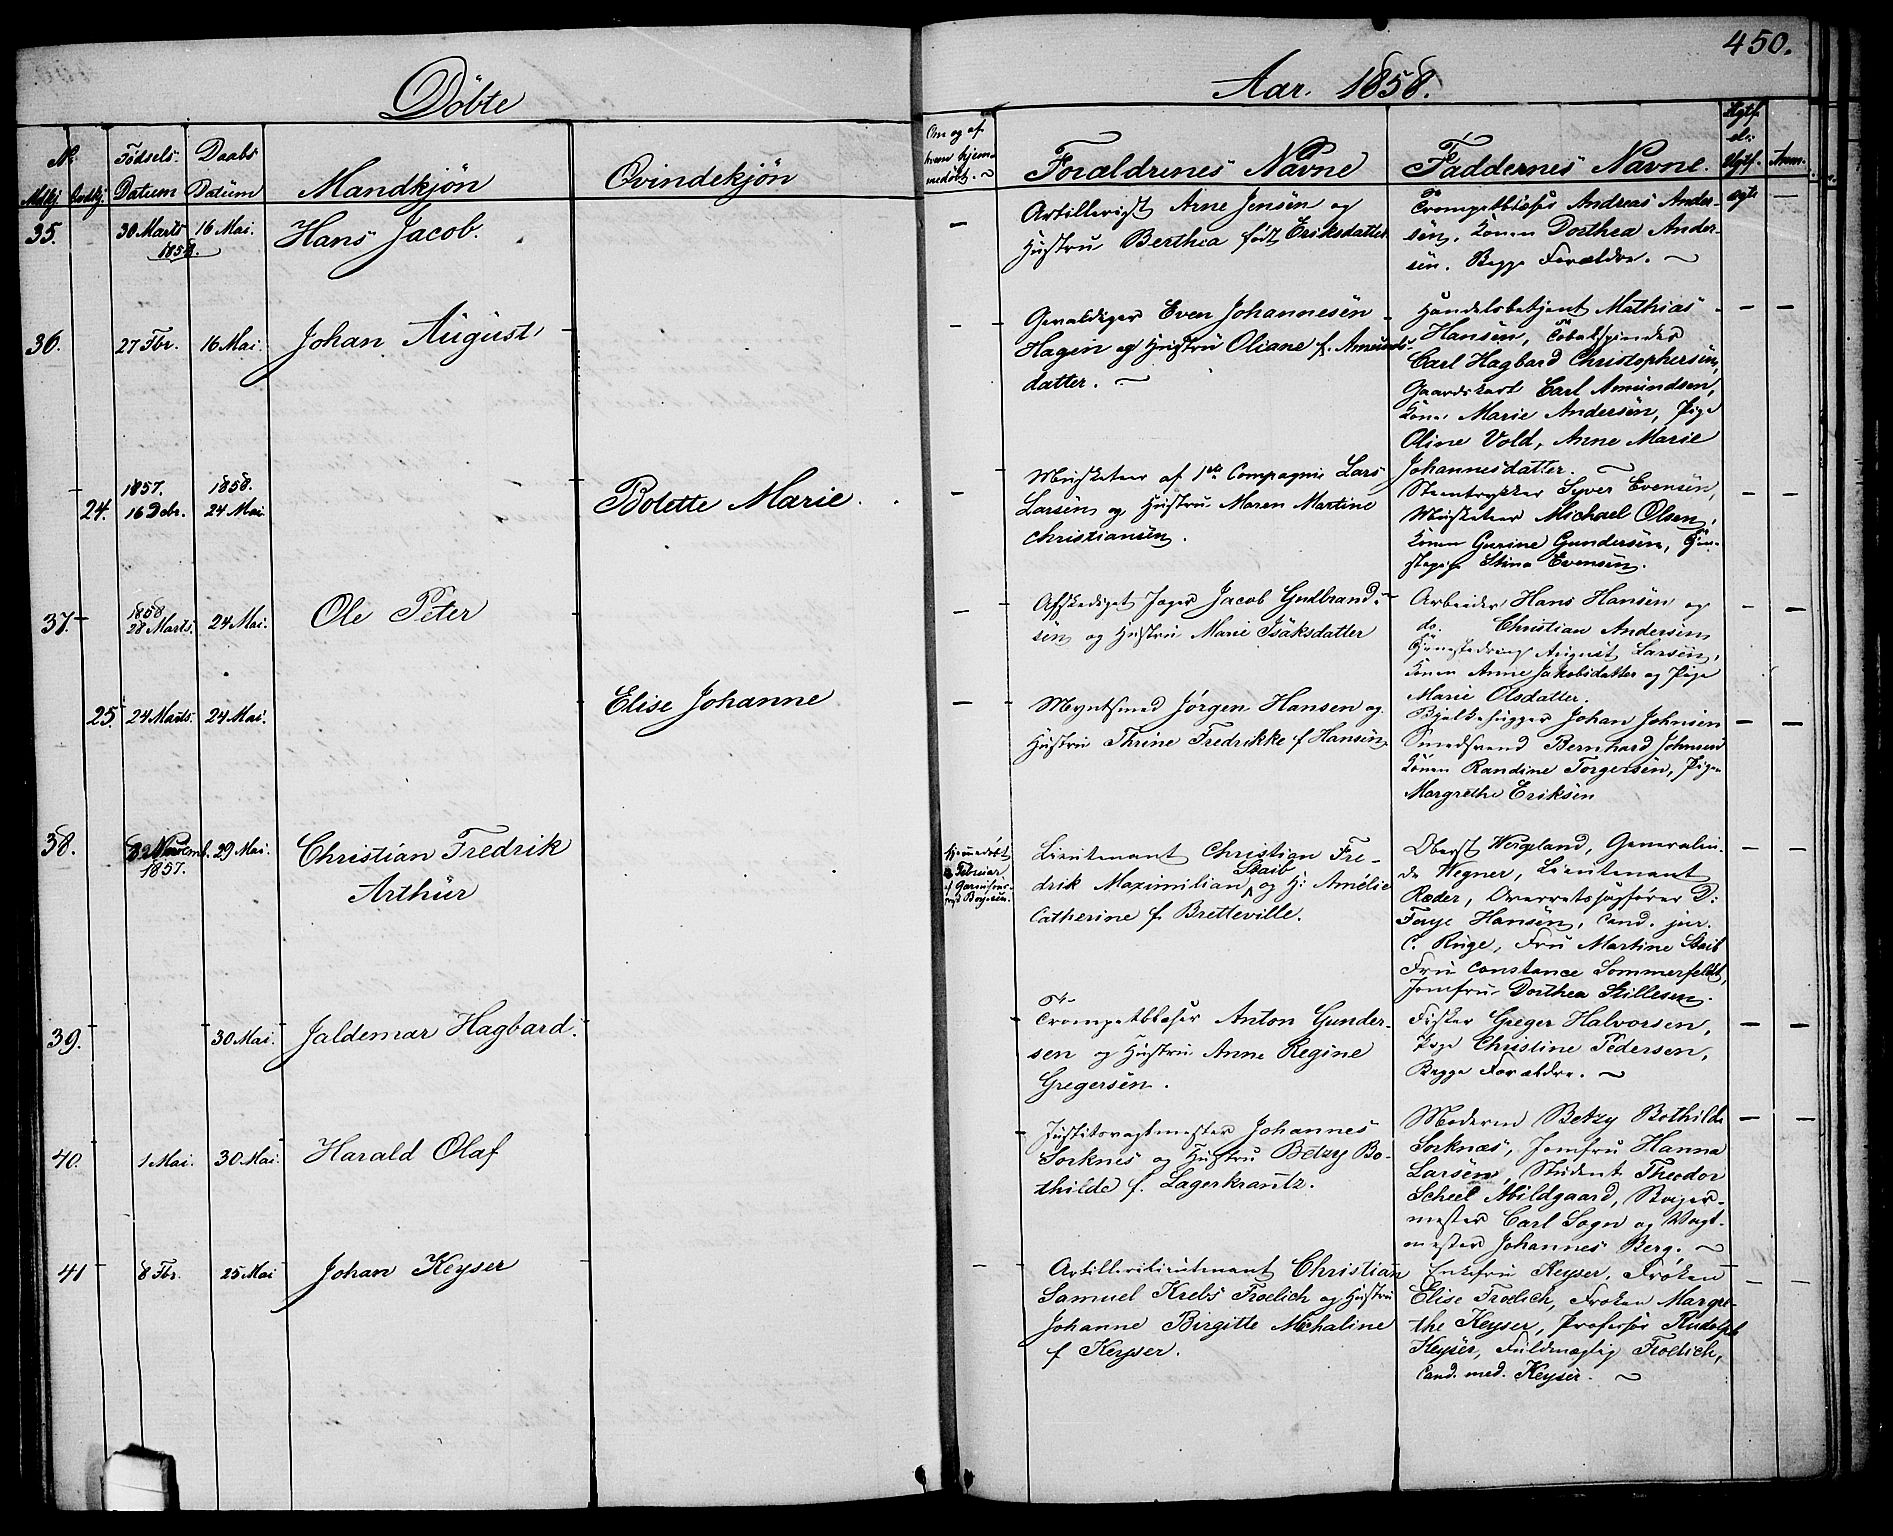 450.
Döbte
Aar. 1858.
No
Mdkj. Qvdkj.
Födsels-
Datum
Daabs
Datum
Mandkjön
Qvindekjön
Om og af
hvem hjem-
medöbt.
Forældrenes Navne
Faddernes Navne.
Ægtf.
el.
Uægtf.
Anm.
35.
30 Marts
1858.
16 Mai.
Hans Jacob.
—
Artillerist Arne Jensen og
Hustru Berthea föd Eriksdatter
Trompetblæser Andreas Ander-
sen, Konen Dorthea Ander-
sen. Begge Forældre.
ægte
—
36.
27 Fbr.
16 Mai.
Johan August
—
Gevaldiger Even Johannesen
Hagen og Hustru Oliane f. Amunds-
datter.
Handelsbetjent Mathias
Hansen, Tobakspinder
Carl Hagbard Christophersen,
Gaardskarl Carl Amundsen,
Kone Marie Andersen, Pige
Oline Vold, Anne Marie
Johannesdatter.
—
—
24.
1857.
16 Debr.
1858.
24 Mai.
Bolette Marie.
—
Musketeer af 1ste Compagnie Lars
Larsen og Hustru Maren Martine
Christiansen.
Steentrykker Syver Evensen,
Musketeer Michael Olsen,
Konen Gurine Gundersen, Tjene-
stepige Stina Evensen.
—
—
37.
1858
28 Marts.
24 Mai.
Ole Peter
—
Afskediget Jæger Jacob Gudbrand-
sen og Hustru Marie Isaksdatter
Arbeider Hans Hansen og
do. Christian Andersen,
Tjenestedreng August Larsen,
Konen Anne Jakobsdatter og Pige
Marie Olsdatter.
—
—
25
24 Marts.
24 Mai.
Elise Johanne
—
Myntsmed Jörgen Hansen og
Hustru Thrine Fredrikke f Hansen,
Bjelkehugger Johan Johnsen
Smedsvend Bernhard Johnsen
Konen Randine Torgersen, Pige
Margrethe Eriksen
—
—
38.
8 Novemb.
1857.
29 Mai.
Christian Fredrik
Arthur
Hjemmedöbt
Februar
af Garnisons-
Lieutenant Christian Fre-
drik Maximilian Staib og H: Amélie
Catherine f. Bretteville.
Oberst Wergeland, Generalin-
de Wegner, Lieutenant
Ræder, Overretssagförer D:
Faye Hansen, Cand. jur.
C. Ruge, Fru Martine Staib
Fru Constance Sommerfeldt,
Jomfru Dorthea Stillesen.
—
—
39.
30 Mai.
Jaldemar Hagbard.
Trompetblæser Anton Gunder-
sen og Hustru Anne Regine
Gregersen.
Fisker Greger Halvorsen,
Pige Christine Pedersen,
Begge Forældre.
—
—
40.
1 Mai.
30 Mai.
Harald Olaf
Justitsvagtmester Johannes
Sorknes og Hustru Betzy Bo-
thilde f. Lagerkrantz.
Moderen Betzy Bothilde
Sorknæs, Jomfru Hanna
Larsen, Student Theodor
Scheel Abildgaard, Bager-
mester Carl Sogn og Vagt-
mester Johannes Berg.
—
—
41
8 Fbr.
25 Mai
Johan Keyser
—
Artillerilieutenant Christian
Samuel Krebs Froelich og Hustru
Johanne Birgitte Michaline
f Keyser.
Enkefru Keyser, Fröken
Elise Froelich, Froken Margre-
the Keyser, Professor Rudolph
Keyser, Fuldmægtig Froelich,
Cand. med. Keyser.
—
—